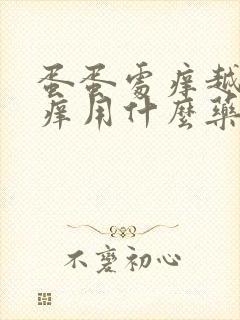 蛋蛋處痒越
痒用什麼藥
不忘初心